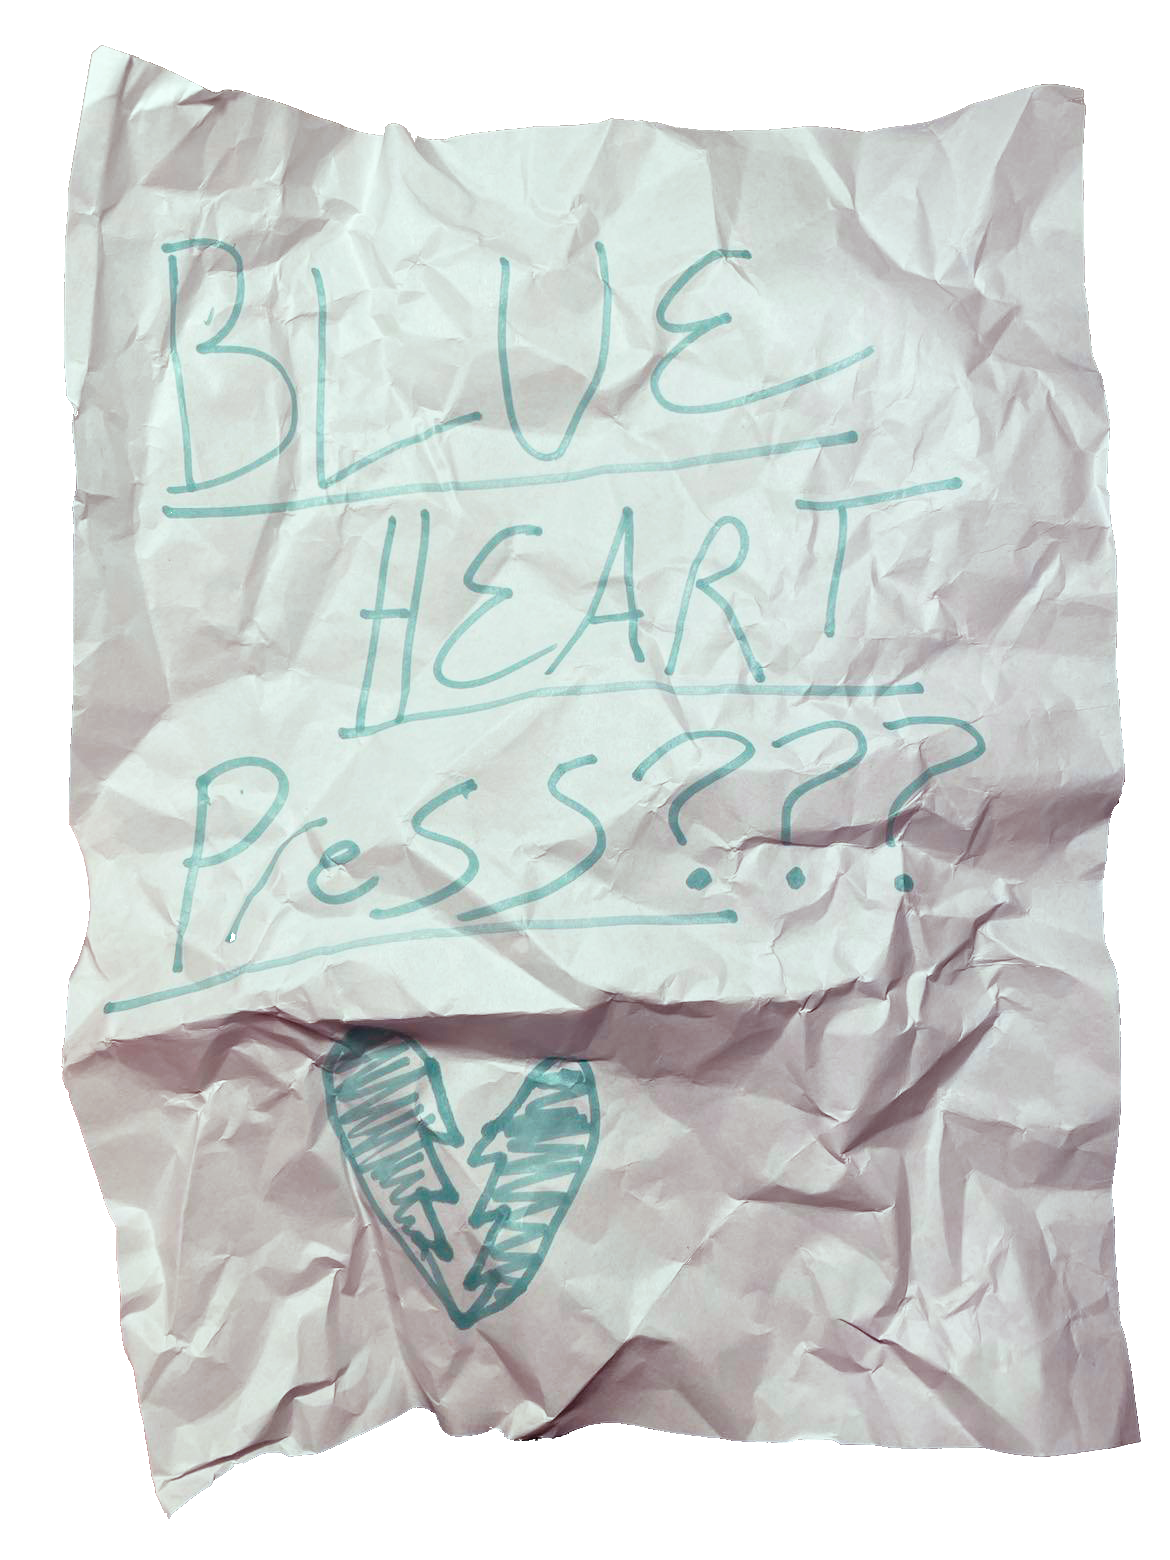 BLUE
HEART
PresS???